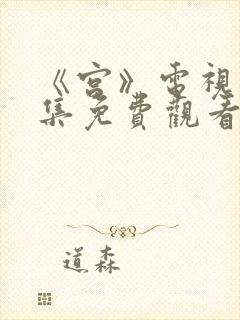 《宮》電視
集免費觀看
道森